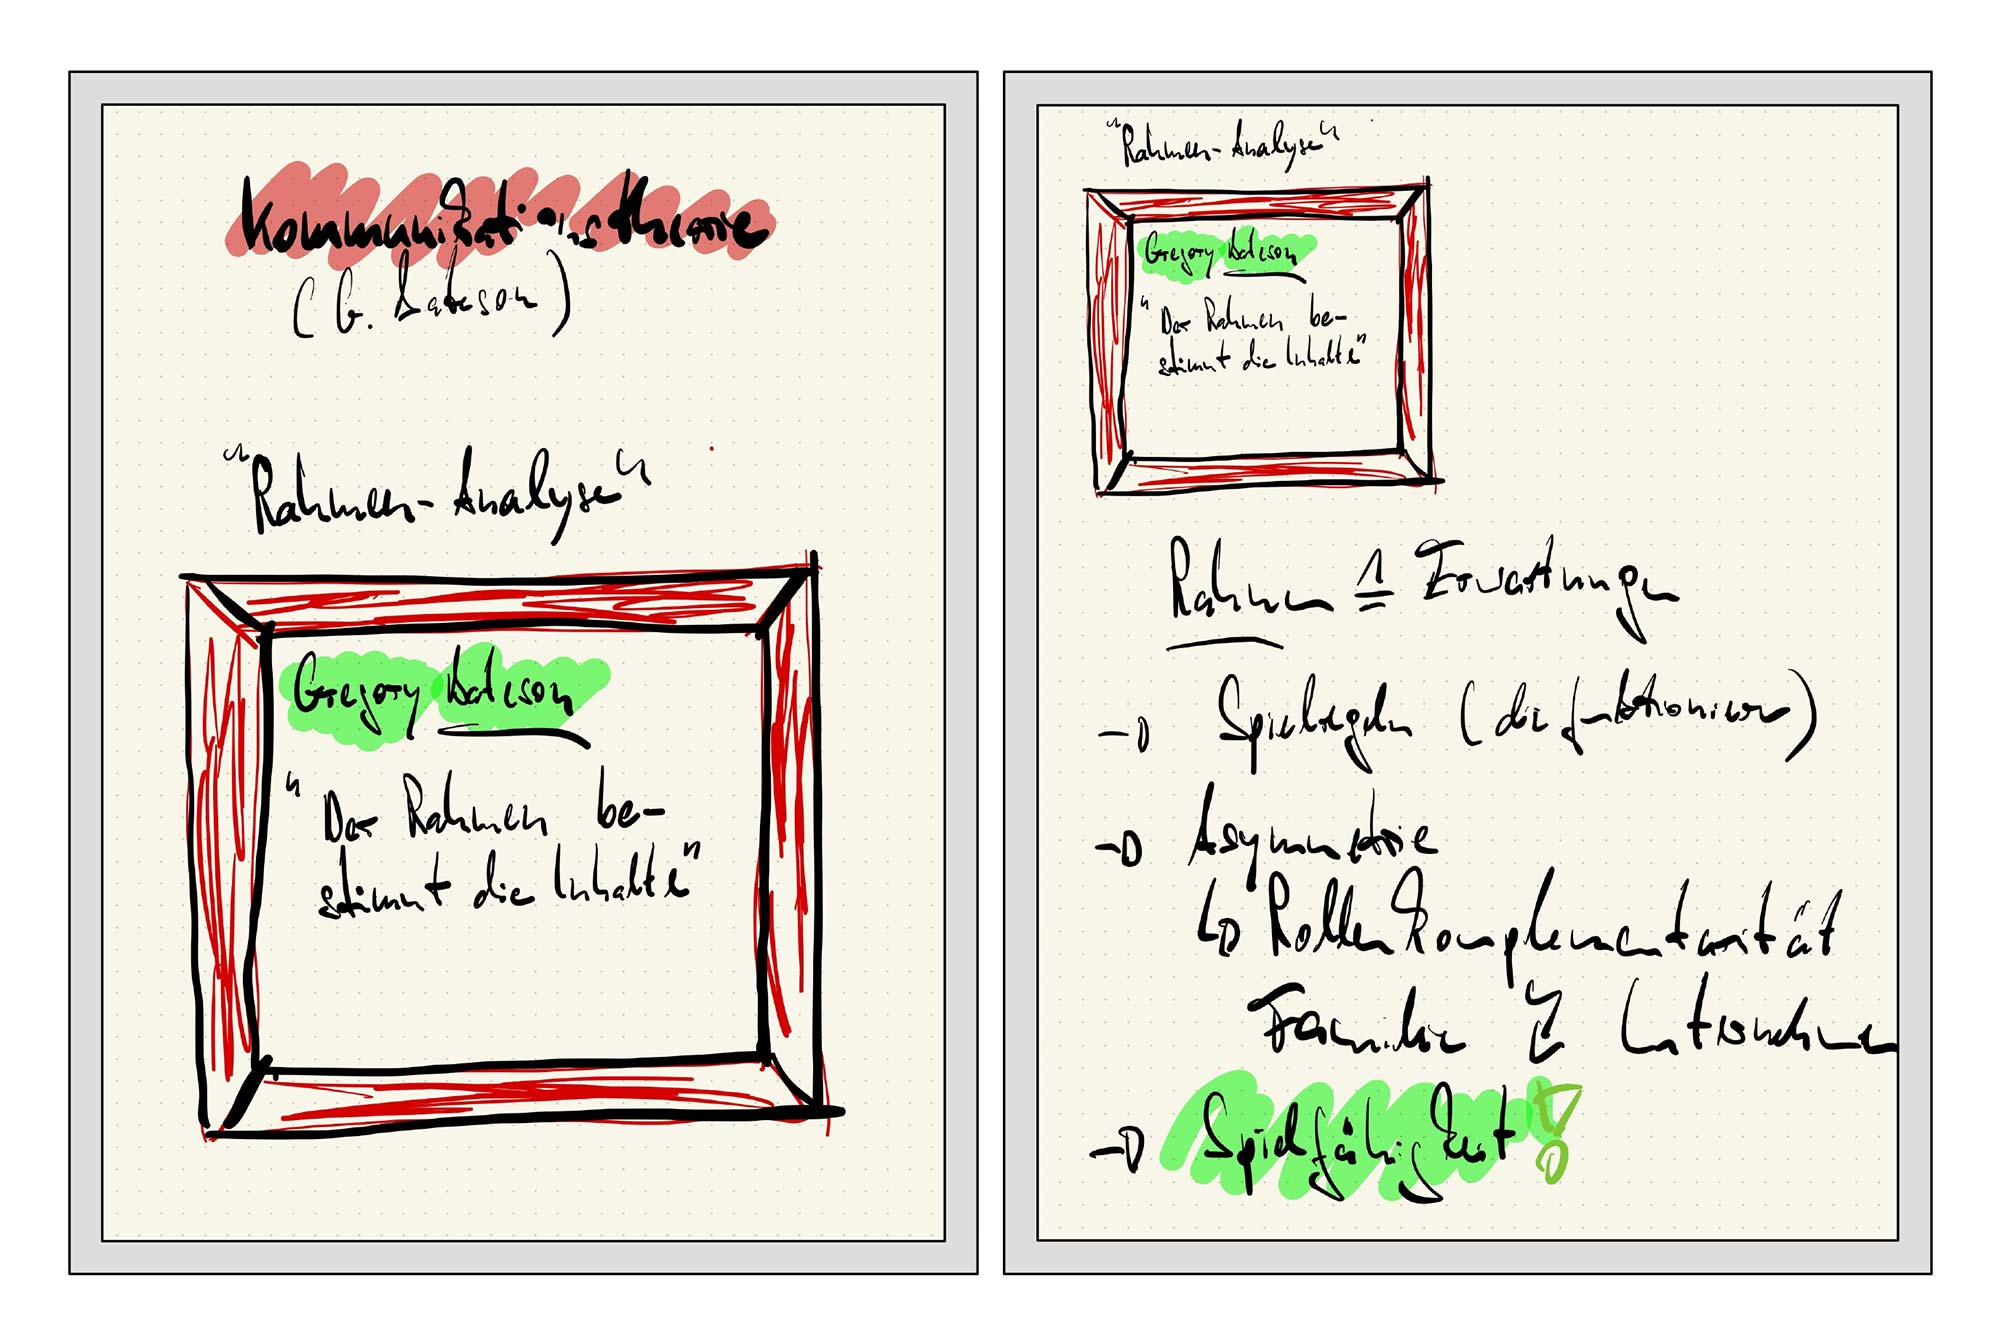 Kommunikationstheorie
(G. Bateson)
"Rahmen-Analyse"
Gregory Bateson
"Der Rahmen be-
stimmt die Inhalte"
"Rahmen-Analyse"
Gregory Bateson
"Der Rahmen be-
stimmt die Inhalte"
Rahmen ≙ Erwartungen
→ Spielregeln (die funktionieren)
→ Asymmetrie
↳ Rollenkomplementarität
Familie ↯ Unternehmen
→ Spielfähigkeit!